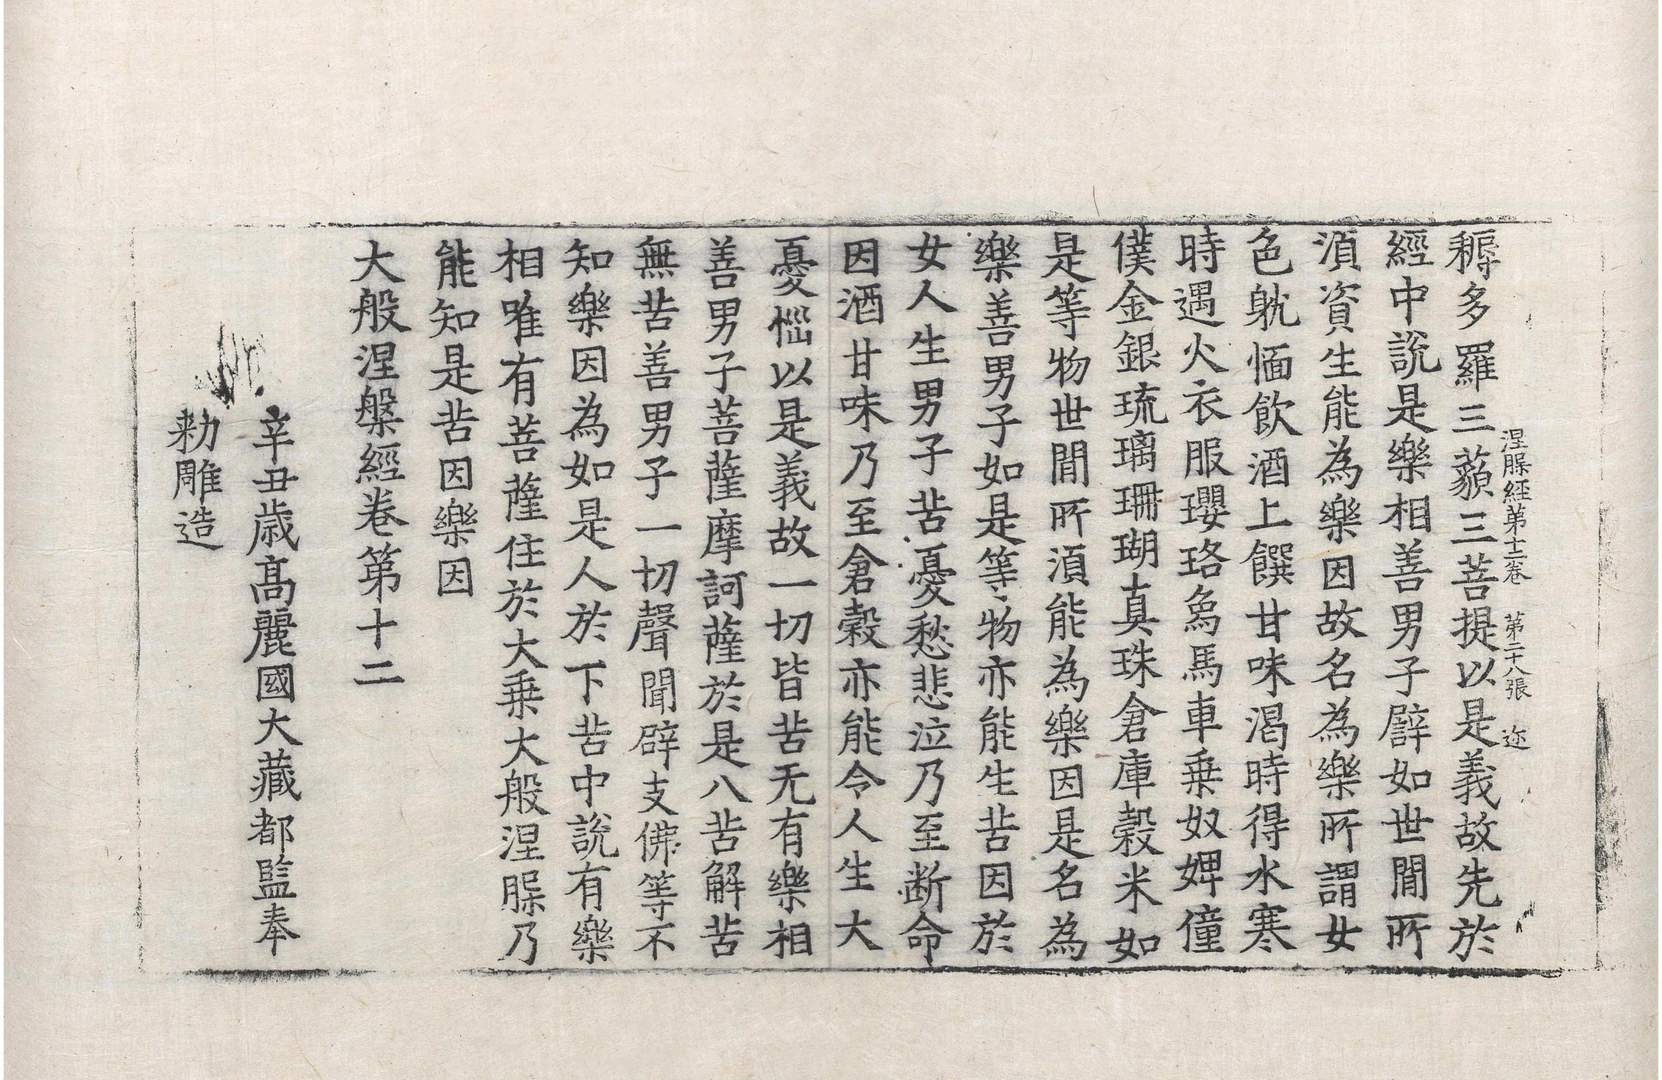 涅槃経苐十二卷 第二十八張 迩
耨多羅三藐三菩提以是義故先於
經中說是樂相善男子譬如世間所
湏資生能為樂因故名為樂所謂女
色躭湎飲酒上饌甘味渴時得水寒
時遇火衣服瓔珞象馬車乗奴婢僮
僕金銀琉璃珊瑚真珠倉庫穀米如
是等物世間所湏能為樂因是名為
樂善男子如是等物亦能生苦因於
女人生男子苦憂愁悲泣乃至断命
因酒甘味乃至倉穀亦能令人生大
憂惱以是義故一切皆苦无有樂相
善男子菩薩摩訶薩於是八苦解苦
無苦善男子一切聲聞辟支佛等不
知樂因為如是人於下苦中說有樂
相唯有菩薩住於大乗大般涅槃乃
能知是苦因樂因
大般涅槃經卷第十二
辛丑歳高麗國大藏都監奉
勑雕造